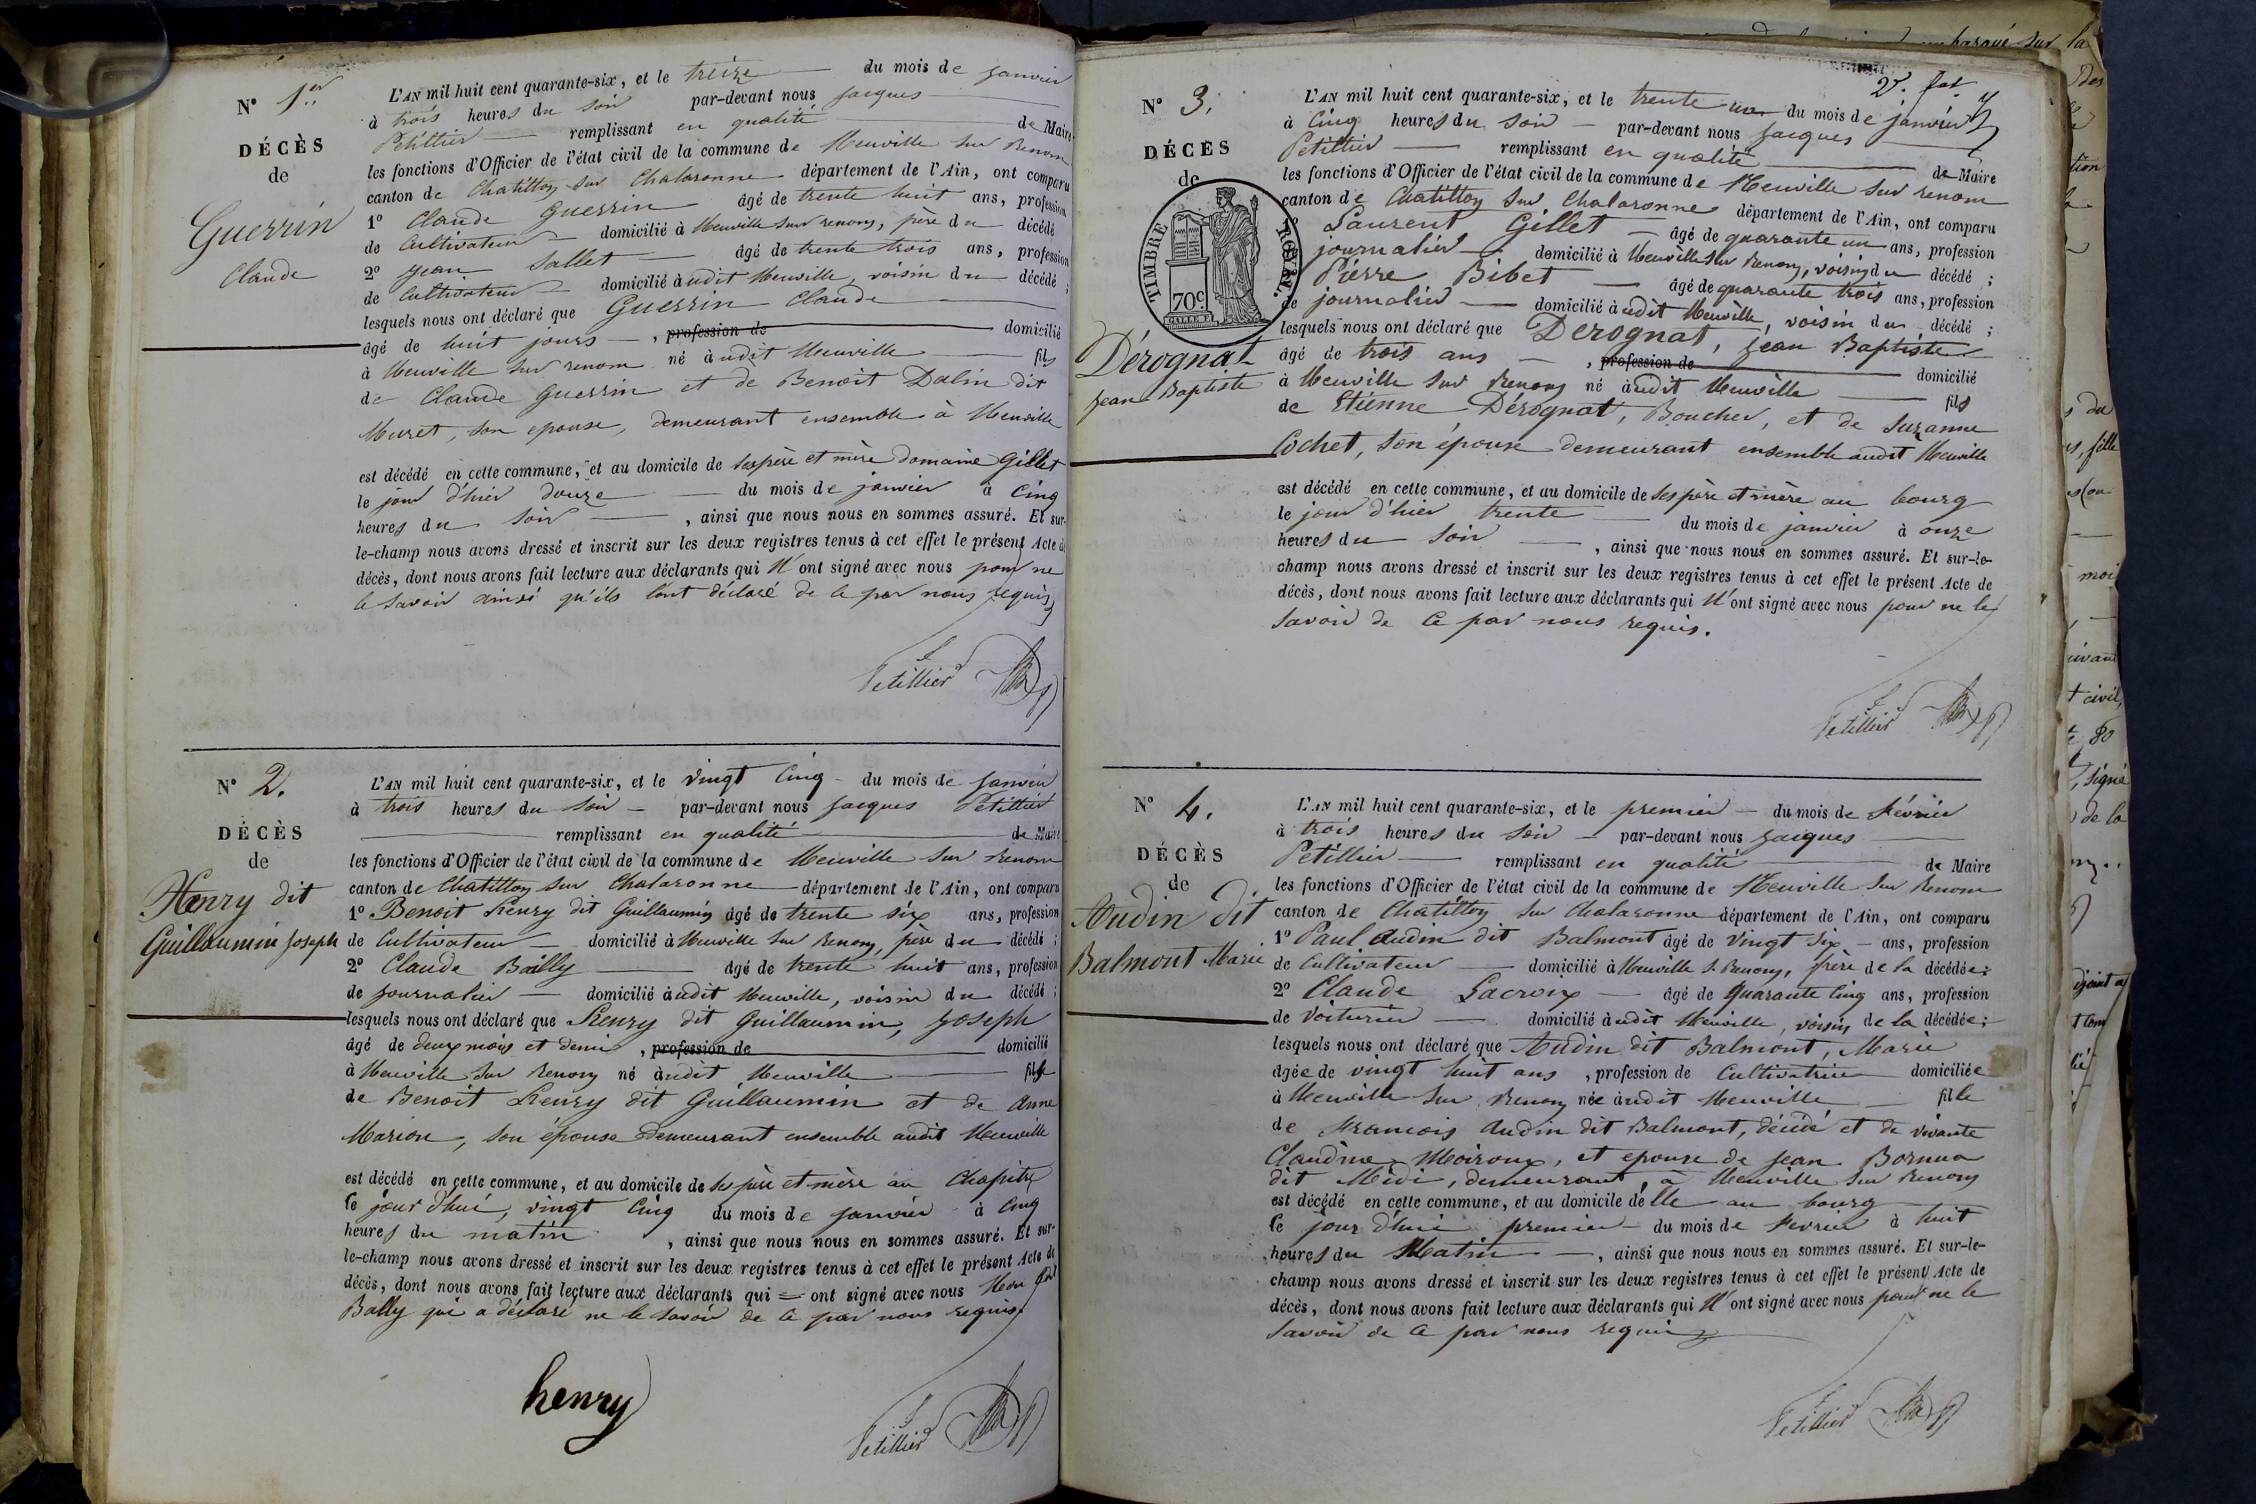 N° 1er
DÉCÈS
de
Guerrin
Claude
L'AN mil huit cent quarante-six, et le treize du mois de janvier
à trois heures du soir par-devant nous jacques
Petillier remplissant en qualité de Maire
les fonctions d'Officier de l'état civil de la commune de Neuville sur Renom
canton de Chatillon sur Chalaronne département de l'Ain, ont comparu
1° Claude Guerrin âgé de trente huit ans, profession
de Cultivateur domicilié à Neuville sur renom, père du décédé
2° jean Sallet âgé de trente trois ans, profession
de Cultivateur domicilié à udit Neuville, voisin du décédé ;
lesquels nous ont déclaré que Guerrin Claude
âgé de huit jours , profession de domicilié
à Neuville sur renom né à udit Neuville fils
de Claude Guerrin et de Benoit Dalin dit
Muret, son epouse, demeurant ensemble à Neuville
est décédé en cette commune, et au domicile de ses père et mère domaine Gillet
le jour d'hier douze du mois de janvier à Cinq
heures du soir , ainsi que nous nous en sommes assuré. Et sur-
le-champ nous avons dressé et inscrit sur les deux registres tenus à cet effet le présent Acte de
décès, dont nous avons fait lecture aux déclarants qui N'ont signé avec nous pour ne
le savoir ainsi qu'ils l'ont déclaré de ce par nous requis
Petillier
N° 2.
DÉCÈS
de
Henry dit
Guillaumin Joseph
L'AN mil huit cent quarante-six, et le vingt Cinq du mois de janvier
à trois heures du soir par-devant nous jacques Petillier
remplissant en qualité de Maire
les fonctions d'Officier de l'état civil de la commune de Neuville sur Renom
canton de Chatillon sur Chalaronne département de l'Ain, ont comparu
1° Benoit Henry dit Guillaumin âgé de trente six ans, profession
de Cultivateur domicilié à Neuville sur Renom, père du décédé ;
2° Claude Bailly âgé de trente huit ans, profession
de journalier domicilié à udit Neuville, voisin du décédé ;
lesquels nous ont déclaré que Henry dit Guillaumin, Joseph
âgé de deux mois et demi , profession de domicilié
à Neuville sur Renom né à udit Neuville fils
de Benoit Henry dit Guillaumin et de Anne
Marion, son épouse demeurant ensemble audit Neuville
est décédé en cette commune, et au domicile de ses père et mère au Chapitre
le jour d'hui, vingt Cinq du mois de janvier à Cinq
heures du matin , ainsi que nous nous en sommes assuré. Et sur-
le-champ nous avons dressé et inscrit sur les deux registres tenus à cet effet le présent Acte de
décès, dont nous avons fait lecture aux déclarants qui ont signé avec nous Non
Bally qui a déclaré ne le savoir de ce par nous requis
henry
Petillier
2e. fet.
N° 3.
DÉCÈS
de
TIMBRE ROYAL.
70c
Dérognat
jean Baptiste
L'AN mil huit cent quarante-six, et le trente un du mois de janvier
à Cinq heures du soir par-devant nous jacques
Petillier remplissant en qualité de Maire
les fonctions d'Officier de l'état civil de la commune de Neuville sur renom
canton de Chatillon sur Chalaronne département de l'Ain, ont comparu
Laurent Gillet âgé de quarante un ans, profession
journalier domicilié à Neuville sur Renom, voisin du décédé ;
Pierre Bibet âgé de quarante trois ans, profession
de journalier domicilié à udit Neuville, voisin du décédé ;
lesquels nous ont déclaré que Dérognat, jean Baptiste
âgé de trois ans , profession de domicilié
à Neuville sur Renom né à udit Neuville fils
de Etienne Dérognat, Boucher, et de Suzanne
Cochet, son épouse demeurant ensemble audit Neuville
est décédé en cette commune, et au domicile de ses père et mère au bourg
le jour d'hier trente du mois de janvier à onze
heures du soir , ainsi que nous nous en sommes assuré. Et sur-le-
champ nous avons dressé et inscrit sur les deux registres tenus à cet effet le présent Acte de
décès, dont nous avons fait lecture aux déclarants qui N'ont signé avec nous pour ne le
savoir de ce par nous requis.
Petillier
N° 4.
DÉCÈS
de
Audin dit
Balmont Marie
L'AN mil huit cent quarante-six, et le premier du mois de février
à trois heures du soir par-devant nous jacques
Petillier remplissant en qualité de Maire
les fonctions d'Officier de l'état civil de la commune de Neuville sur Renom
canton de Chatillon sur Chalaronne département de l'Ain, ont comparu
1° Paul Audin dit Balmont âgé de vingt six ans, profession
de Cultivateur domicilié à Neuville s. Renom, frère de la décédée ;
2° Claude Lacroix âgé de quarante Cinq ans, profession
de voiturier domicilié à udit Neuville, voisin de la décédée ;
lesquels nous ont déclaré que Audin dit Balmont, Marie
âgée de vingt huit ans , profession de Cultivatrice domiciliée
à Neuville sur Renom née à udit Neuville fille
de francois Audin dit Balmont, décédé et de vivante
Claudine Moiroux, et epouse de jean Bornua
dit Midi, demeurant à Neuville sur Renom
est décédé en cette commune, et au domicile d'elle au bourg
le jour d'hui premier du mois de fevrier à huit
heures du Matin , ainsi que nous nous en sommes assuré. Et sur-le-
champ nous avons dressé et inscrit sur les deux registres tenus à cet effet le présent Acte de
décès, dont nous avons fait lecture aux déclarants qui N'ont signé avec nous pour ne le
savoir de ce par nous requis
Petillier